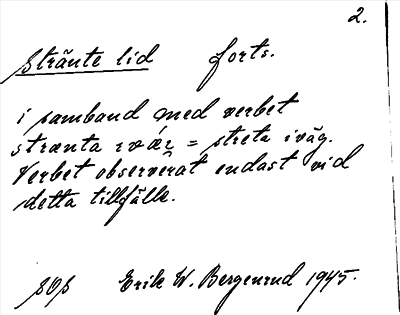 2.
Stränte lid forts.
i samband med verbet
strænta ivær = streta iväg.
Verbet observerat endast vid
detta tillfälle.
Erik W. Bergenrud 1945.